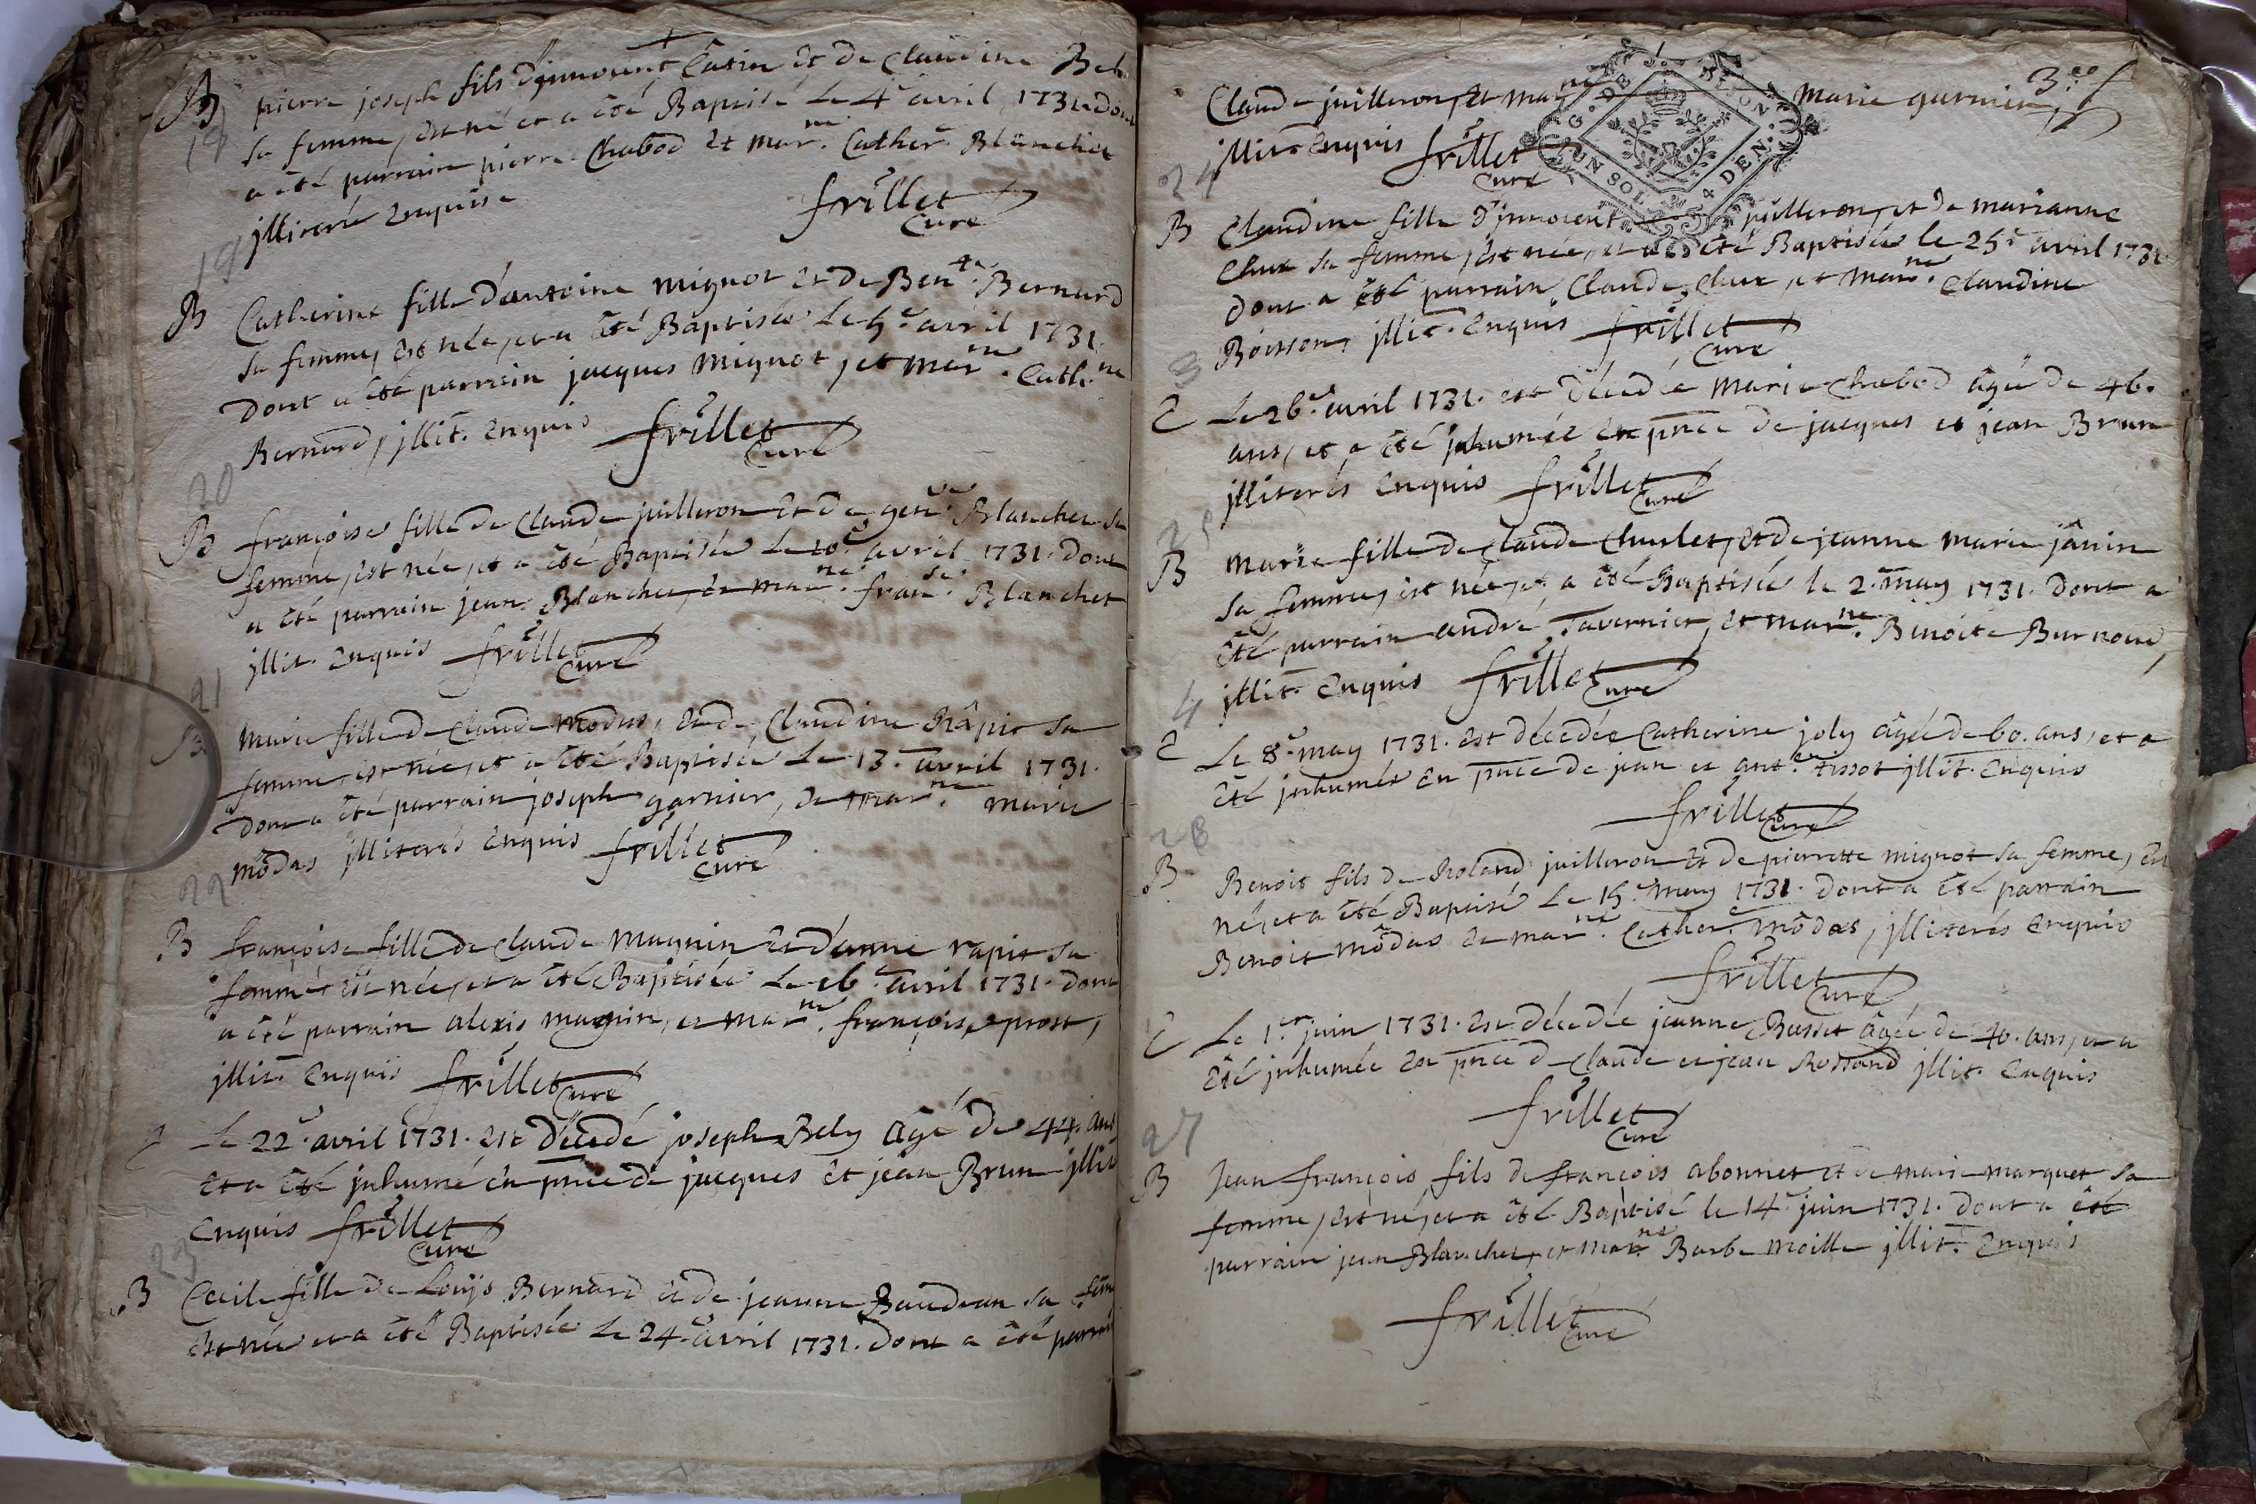 B pierre joseph fils d'jnnocent Catin Et de Claudine
18 sa femme, est né et a été Baptisé Le 4e avril 1731. Dont
a été parrain pierre Chabod et mar.ne Cather. Blanchet
jlliterés Enquis frillet
Curé
19
B Catherine fille d'antoine mignot et de Ben.te Bernard
sa femme, est née, et a été Baptisée Le 5.e avril 1731.
Dont a été parrain jacques mignot, et mar.ne Cath.ne
Bernard, jllit. Enquis frillet
Curé
20
B françoise fille de Claude juilleron Et de gen.ve Blanchet sa
femme, est née, et a été Baptisée Le 10.e avril 1731. Dont
a été parrain jean Blanchet, et mar.ne fran.se Blanchet
jllit. Enquis frillet
Curé
21
B Marie fille de Claude modas, et de Claudine Râpit sa
femme, est née, et a été Baptisée Le 13.e avril 1731.
Dont a été parrain joseph garnier, et mar.ne marie
môdas jlliterés Enquis frillet
Curé
22
B françoise fille de Claude magnin Et d'anne rapit sa
femme, est née, et a été Baptisée Le 16.e avril 1731. Dont
a été parrain alexis magnin, et mar.ne françoise prost,
jllit. Enquis frillet
Curé
Le 22.e avril 1731. est décedé joseph Bely âgé de 44. ans
Et a été jnhumé en pnce de jacques Et jean Brun jllit
Enquis frillet
Curé
23
B Cecile fille de Loüis Bernard et de jeanne Baudran sa fem
est née et a été Baptisée Le 24.e avril 1731. Dont a été parrain
3.e f
Claude juilleron, et mar.ne Marie garnier,
jllit. Enquis frillet
Curé
G. DE
UN SOL
4 DEN.
24
B Claudine fille d'jnnocent juilleron, et de marianne
Chux sa femme, est née, et a été Baptisée le 25.e avril 1731
Dont a été parrain Claude Chux, et mar.ne Claudine
Boisson, jllit. Enquis frillet
Curé
3
E Le 26.e avril 1731. est décedée Marie Chabod âgée de 46.
ans, et a été jnhumée En pnce de jacques et jean Brun
jlliterés Enquis frillet
Curé
25
B Marie fille de Claude Chulet, et de jeanne marie jânin
sa femme, est née, et a été Baptisée le 2.e may 1731. Dont a
été parrain andré Tavernier, et mar.ne Bénoite Burnoud,
jllit. Enquis frillet
Curé
4
E Le 8.e may 1731. est décedée Catherine joly âgée de 60. ans, et a
été jnhumée En pnce de jean et ant.e tissot jllit. Enquis
frillet
Curé
26
B Benoit fils de Roland juilleron Et de pierrette mignot sa femme, est
né, et a été Baptisé Le 15.e may 1731. Dont a été parrain
Benoit môdas et mar.ne Cather.e môdas, jlliterés Enquis
frillet
Curé
E Le 1.er juin 1731. est décedée jeanne Busset âgée de 40. ans, et a
été jnhumée En pnce de Claude et jean Rossand jllit. Enquis
frillet
Curé
27
B Jean françois fils de françois abonnet et de marie marquet sa
femme, est né, et a été Baptisé le 14.e juin 1731. Dont a été
parrain jean Blanchet, et mar.ne Barbe moille jllit. Enquis
frillet
Curé